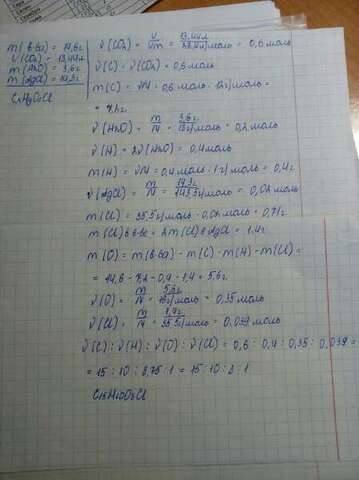 m(в-ва) = 14,6г
V(CO₂) = 13,44л
m(H₂O) = 3,6г
m(AgCl) = 14,3г
CxHyOzCl
ν(CO₂) = V/Vm = 13,44л/22,4л/моль = 0,6 моль
ν(C) = ν(CO₂) = 0,6 моль
m(C) = νM = 0,6 моль · 12г/моль =
= 7,2г
ν(H₂O) = m/M = 3,6г/18г/моль = 0,2 моль
ν(H) = 2ν(H₂O) = 0,4 моль
m(H) = νM = 0,4 моль · 1г/моль = 0,4г
ν(AgCl) = m/M = 14,3г/143,5г/моль = 0,02 моль
m(Cl) = 35,5г/моль · 0,02 моль = 0,71г
m(Cl) в в-ве = 2m(Cl) в AgCl = 1,4г
m(O) = m(в-ва) - m(C) - m(H) - m(Cl) =
= 14,6 - 7,2 - 0,4 - 1,4 = 5,6г
ν(O) = m/M = 5,6г/16г/моль = 0,35 моль
ν(Cl) = m/M = 1,4г/35,5г/моль = 0,039 моль
ν(C) : ν(H) : ν(O) : ν(Cl) = 0,6 : 0,4 : 0,35 : 0,039 =
= 15 : 10 : 8,75 : 1 = 15 : 10 : 8 : 1